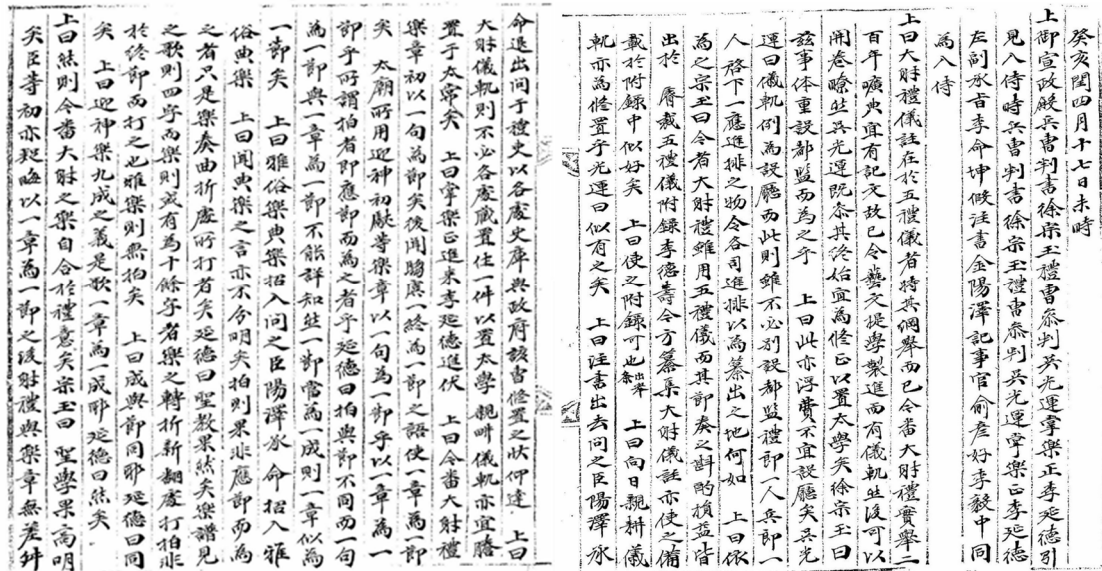 癸亥閏四月十七日未時
上御宣政殿兵曹判書徐宗玉禮曹叅判吳光運掌樂正李延德引
見入侍時兵曹判書徐宗玉禮曹叅判吳光運掌樂正李延德
左副承旨李命坤假注書金陽澤記事官俞彥好李毅中同
為入侍
上曰大射禮儀註在於五禮儀者特其綱舉而已今番大射禮實舉二
百年曠典宜有記文故已令藝文提學製進而有儀軌然後可以
開卷瞭然吳光運既叅其終始宜為修正以置太學矣徐宗玉曰
茲事体重設都監而為之乎 上曰此亦浮費不宜設廳矣吳光
運曰儀軌例為設廳而此則雖不必別設都監禮郎一人兵郎一
人 啓下一應進排之物令各司進排以為纂出之地何如 上曰依
為之宗玉曰今者大射禮雖用五禮儀而其節奏之斟酌損益皆
出於 睿裁五禮儀附錄李德壽今方纂集大射儀註亦使之備
載於附錄中似好矣 上曰使之附錄可也出舉條 上曰向日親耕儀
軌亦為修置乎光運曰似有之矣 上曰注書出去問之臣陽澤承
命退出問于禮吏以各處史庫與政府該曹修置之狀仰達 上曰
大射儀軌則不必各處藏置一件以置太學 親畊儀軌亦宜謄
置于太常矣 上曰掌樂正進來李延德進伏 上曰今番大射禮
樂章初以一句為節矣後聞騶虞一終為一節之語使一章為一節
矣 太廟所用迎神初獻等樂章以一句為一節乎以一章為一
節乎所謂拍者即應節而為之者乎延德曰拍與節不同而一句
為一節與一章為一節不能詳知然一節當為一成則一章似為
一節矣 上曰雅俗樂典樂招入問之臣陽澤承 命招入雅
俗典樂 上曰聞典樂之言亦不分明矣拍則果非應節而為
之者只是樂奏曲折處所打者矣延德曰聖教果然矣樂譜見
之歌則四字而樂則或有為十餘字者樂之轉折新翻處打拍非
於終節而打之也雅樂則無拍矣 上曰成與節同耶延德曰同
矣 上曰迎神樂九成之義是歌一章為一成耶 延德曰然矣
上曰然則今番大射之樂自合於禮意矣宗玉曰 聖學果高明
矣臣等初亦疑晦以一章為一節之後射禮與樂章無差舛